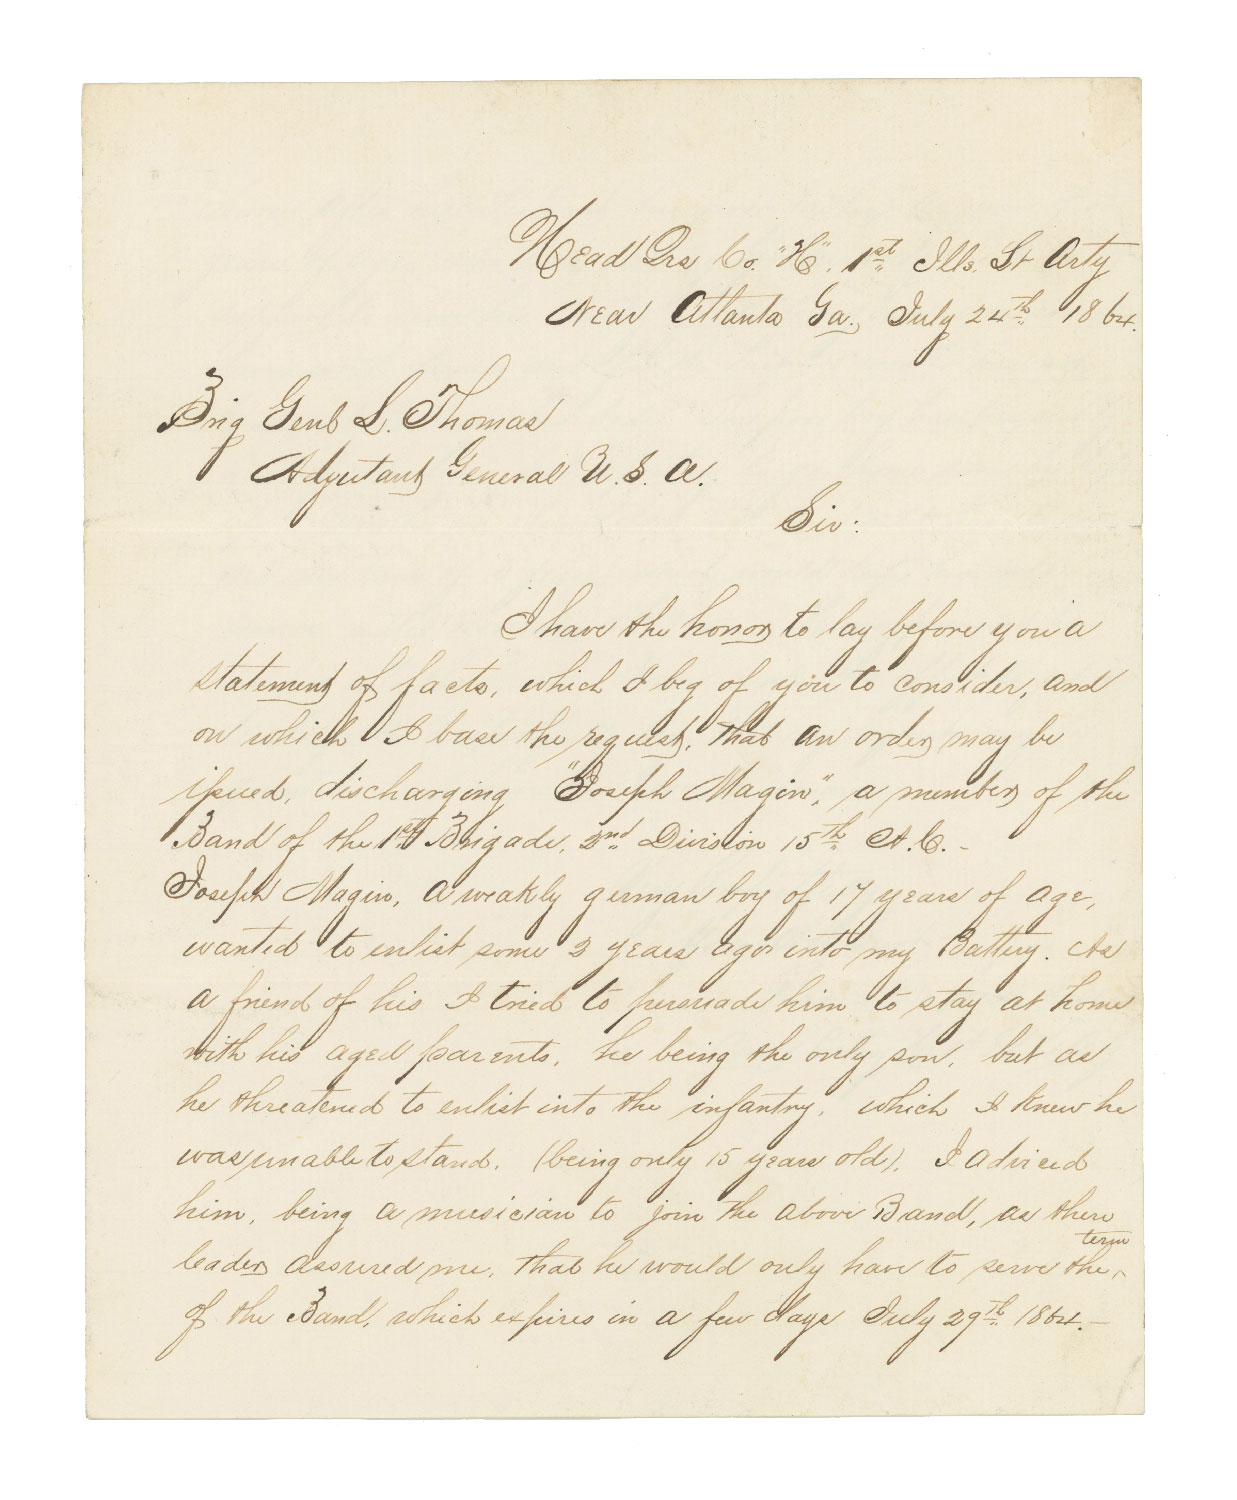 Head Qrs Co. "H". 1st Ills. Lt Arty
Near Atlanta Ga., July 24th 1864.
Brig Genl L. Thomas
Adjutant General U. S. A.
Sir:
I have the honor to lay before you a
statement of facts, which I beg of you to consider, and
on which I base the request, that an order may be
issued, discharging "Joseph Magin", a member of the
Band of the 1st Brigade, 2nd Division 15th A. C. -
Joseph Magin, a weakly german boy of 17 years of age,
wanted to enlist some 2 years ago into my Battery. As
a friend of his I tried to persuade him to stay at home
with his aged parents, he being the only son, but as
he threatened to enlist into the infantry, which I knew he
was unable to stand, (being only 15 years old), I adviced
him, being a musician to join the above Band, as there
term
leader assured me, that he would only have to serve the ^
of the Band, which expires in a few days July 29th 1864. -